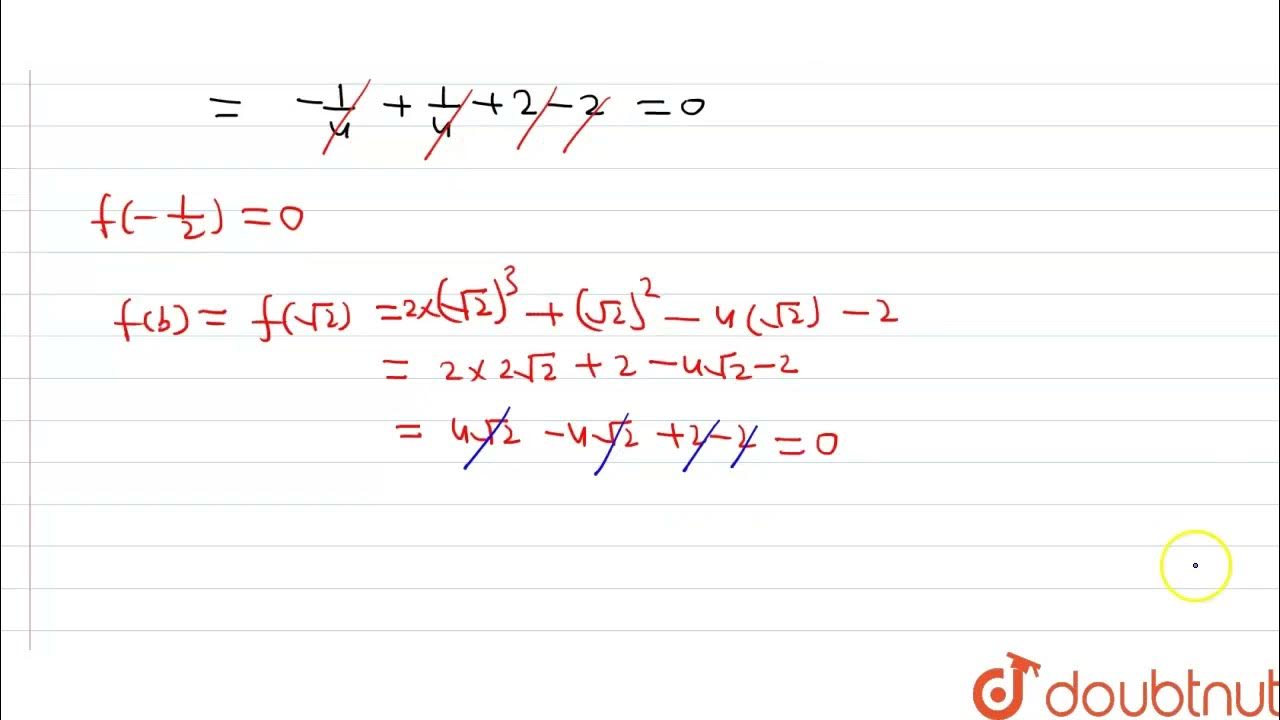 = -1/4 + 1/4 + 2 - 2 = 0
f(-1/2) = 0
f(b) = f(√2) = 2×(√2)³ + (√2)² - 4(√2) - 2
= 2×2√2 + 2 - 4√2 - 2
= 4√2 - 4√2 + 2 - 2 = 0
doubtnut